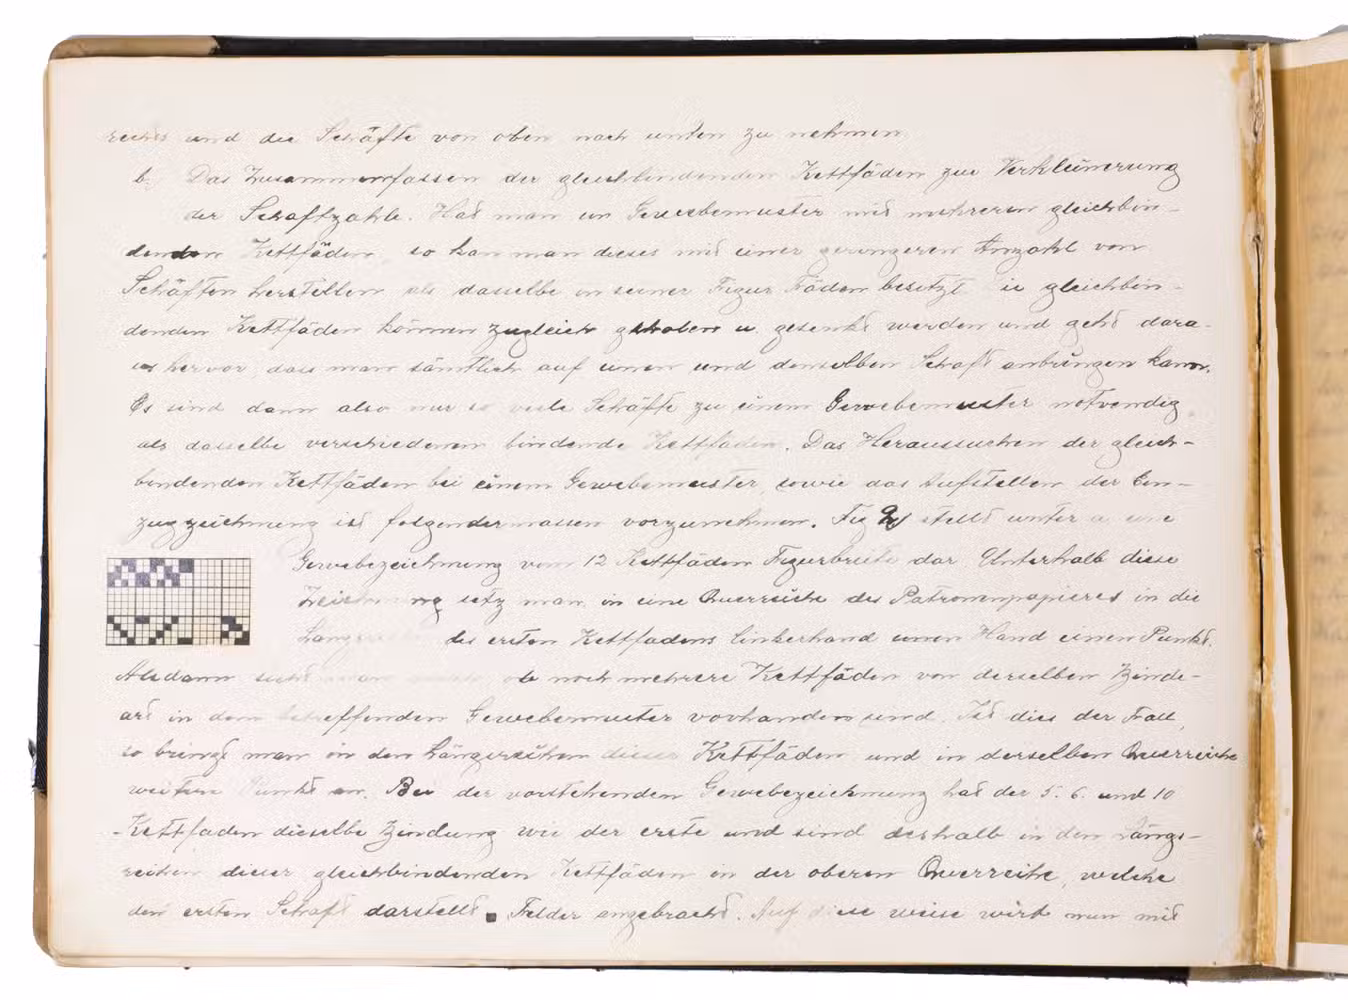 rechts und die Schäfte von oben nach unten zu nehmen
b. Das Zusammenfassen der gleichbindenden Kettfäden zur Verkleinerung
der Schaftzahl. Hat man ein Gewebemuster mit mehreren gleichbin-
denden Kettfäden so kan man dieses mit einer geringeren Anzahl von
Schäften herstellen als dasselbe in seiner Figur Fäden besetzt ie gleichbin-
denden Kettfäden können zugleich gehoben u. gesenkt werden und geht dara-
us hervor dass man sämtlich auf einen und demselben Schaft anbringen kann.
Es sind dann also nur so viele Schäfte zu einem Gewebemuster notvendig
als dasselbe verschiedenen bindende Kettfäden. Das Heraussuchen der gleich-
bindenden Kettfäden bei einem Gewebemuster, sowie das Aufstellen der Ein-
zugzeichnung ist folgendermassen vorzunehmen. Fig stellt unter a eine
Gewebezeichnung von 12 Kettfäden Figurbreite dar Unterhalb diese
Zeichnung setz man in eine Querreihe des Patronenpapieres in die
des ersten Kettfadens linkerhand einen Punkt.
Alsdann sieht man ob noch mehrere Kettfäden von derselben Binde-
art in dem betreffenden Gewebemuster vorhanden sind. Ist dies der Fall,
so bringt man in den Längsreihen dieser Kettfäden und in derselben Querreihe
weitere Punkt an. Bei der vorstehenden Gewebezeichnung hat der 5. 6. und 10
-Kettfaden dieselbe Bindung wie der erste und sind deshalb in den Längs-
reihen dieser gleichbindenden Kettfäden in der oberen Querreihe, welche
den ersten Schaft darstellt Felder angebracht. Auf diese weise wird nun mit